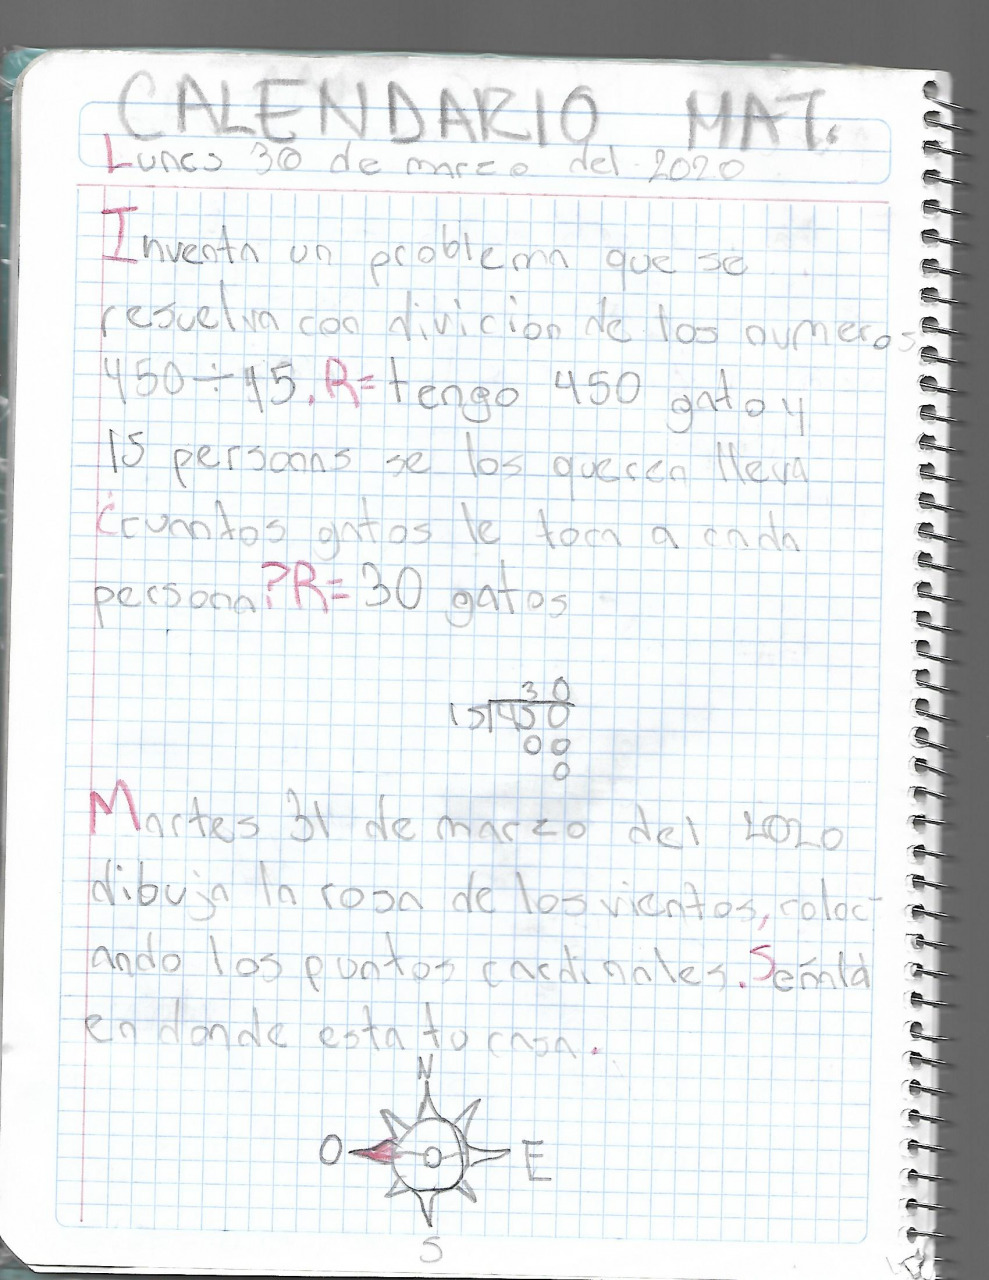 CALENDARIO MAT.
Lunes 30 de marzo del 2020
Inventa un problema que se
resuelva con divicion de los numeros
450÷15. R= tengo 450 gato y
15 personas se los queren lleva
¿cuantos gatos le toca a cada
persona? R= 30 gatos
30
15 450
00
0
Martes 31 de marzo del 2020
dibuja la rosa de los vientos, coloc-
ando los puntos cardinales. Señala
en donde esta tu casa.
N
O E
S